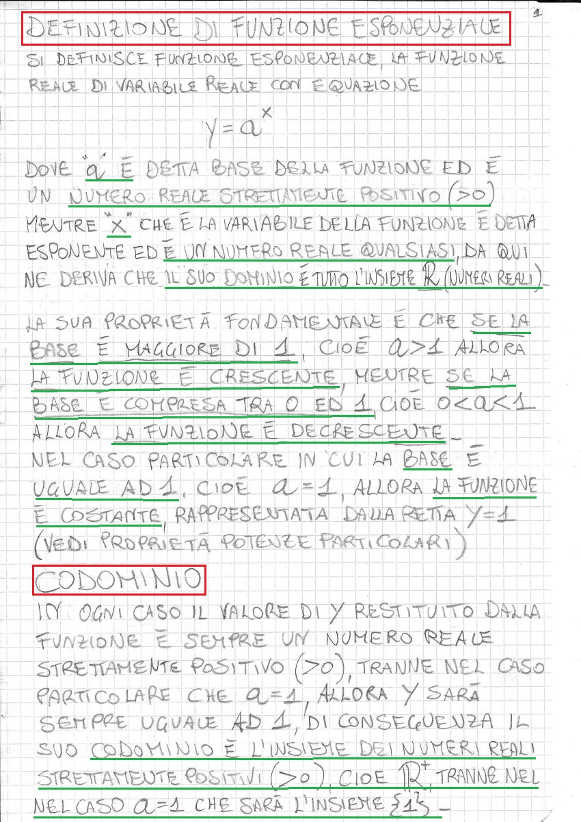 1
DEFINIZIONE DI FUNZIONE ESPONENZIALE
SI DEFINISCE FUNZIONE ESPONENZIALE, LA FUNZIONE
REALE DI VARIABILE REALE CON EQUAZIONE
y=a^x
DOVE "a" È DETTA BASE DELLA FUNZIONE ED È
UN NUMERO REALE STRETTAMENTE POSITIVO (>0)
MENTRE "X" CHE È LA VARIABILE DELLA FUNZIONE È DETTA
ESPONENTE ED È UN NUMERO REALE QUALSIASI, DA QUI
NE DERIVA CHE IL SUO DOMINIO È TUTTO L'INSIEME ℝ (NUMERI REALI).
LA SUA PROPRIETÀ FONDAMENTALE È CHE SE LA
BASE È MAGGIORE DI 1, CIOÈ a>1 ALLORA
LA FUNZIONE È CRESCENTE, MENTRE SE LA
BASE E COMPRESA TRA 0 ED 1, CIOÈ 0<a<1
ALLORA LA FUNZIONE È DECRESCENTE_
NEL CASO PARTICOLARE IN CUI LA BASE È
UGUALE AD 1, CIOÈ a=1, ALLORA LA FUNZIONE
È COSTANTE, RAPPRESENTATA DALLA RETTA Y=1
(VEDI PROPRIETÀ POTENZE PARTICOLARI)
CODOMINIO
IN OGNI CASO IL VALORE DI Y RESTITUITO DALLA
FUNZIONE È SEMPRE UN NUMERO REALE
STRETTAMENTE POSITIVO (>0), TRANNE NEL CASO
PARTICOLARE CHE a=1, ALLORA Y SARÀ
SEMPRE UGUALE AD 1, DI CONSEGUENZA IL
SUO CODOMINIO È L'INSIEME DEI NUMERI REALI
STRETTAMENTE POSITIVI (>0), CIOÈ ℝ⁺, TRANNE NEL
NEL CASO a=1 CHE SARÀ L'INSIEME {1}_